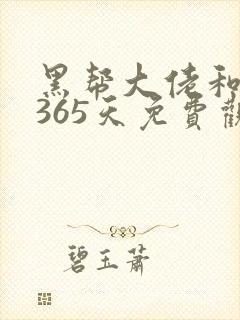 黑帮大佬和
365天免費
碧玉萧